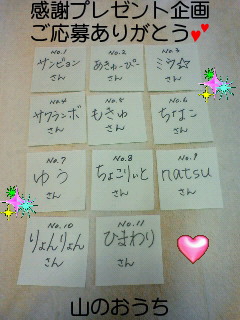 感謝プレゼント企画
ご応募ありがとう
No.1
ザンビョン
さん
No.2
あきゅーぴー
さん
No.3
ミウ☆
さん
No.4
サクランボ
さん
No.5
もきゅ
さん
No.6
ちなこ
さん
No.7
ゆう
さん
No.8
ちょこりぃと
さん
No.9
natsu
さん
No.10
りょんりょん
さん
No.11
ひまわり
さん
山のおうち